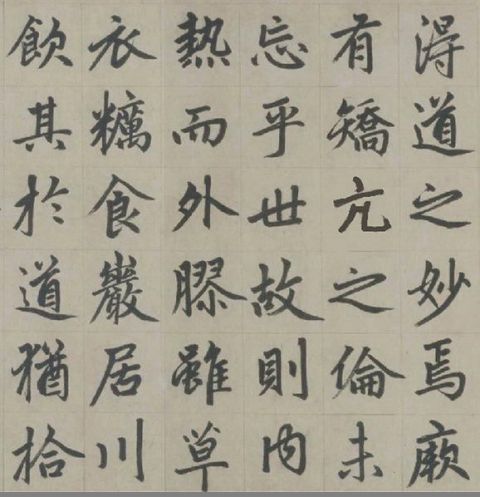 得道之妙焉厥
有矯亢之倫未
忘乎世故則内
熱而外膠雖草
衣糲食巖居川
飲其於道猶拾